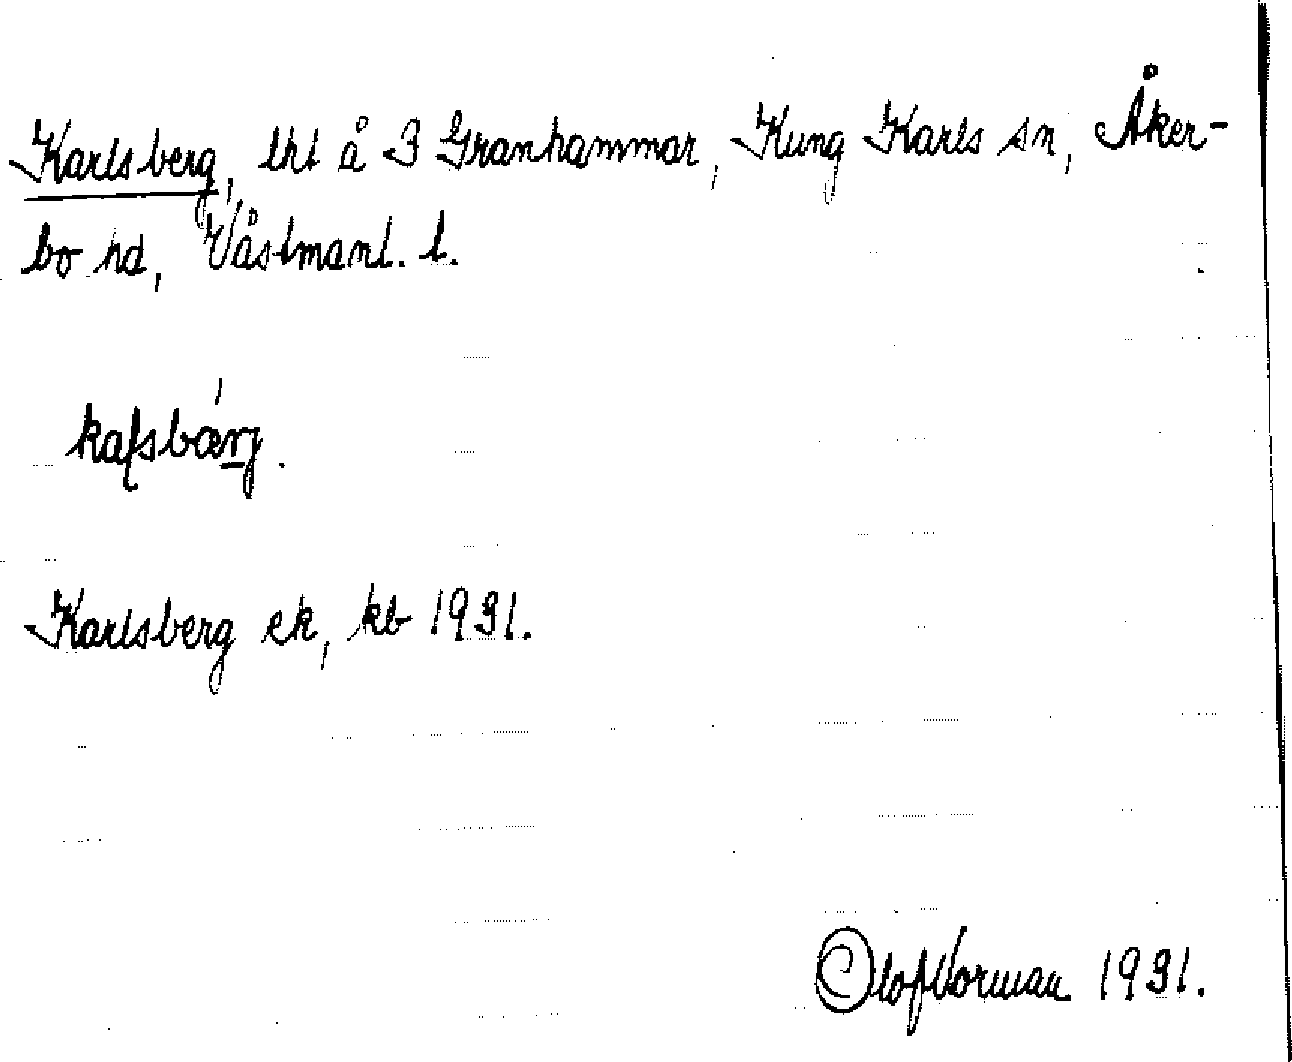 Karlsberg, tht å 3 Granhammar, Kung Karls sn, Åker-
bo hd, Västmanl. l.
Karlsberg ek, kb 1931.
Olof Vorman 1931.